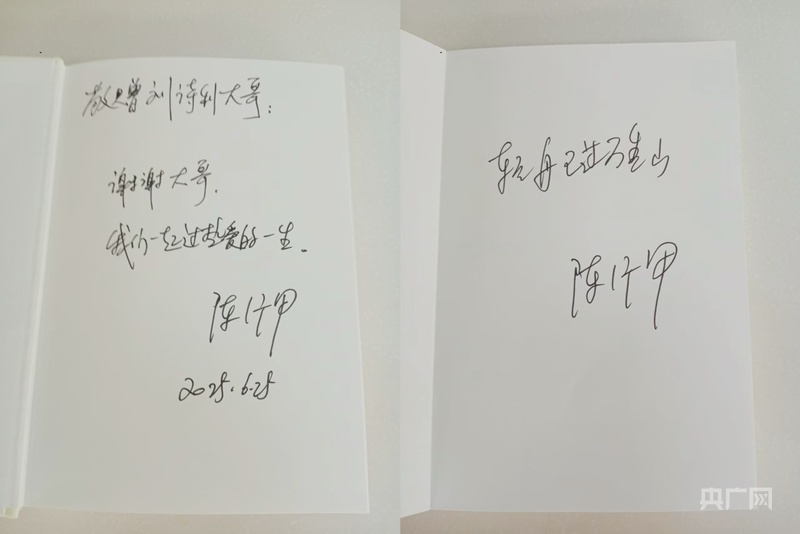 敬赠刘诗利大哥：
谢谢大哥.
我们一起过热爱的一生.
陈行甲
2025.6.25
轻舟已过万重山
陈行甲
央广网